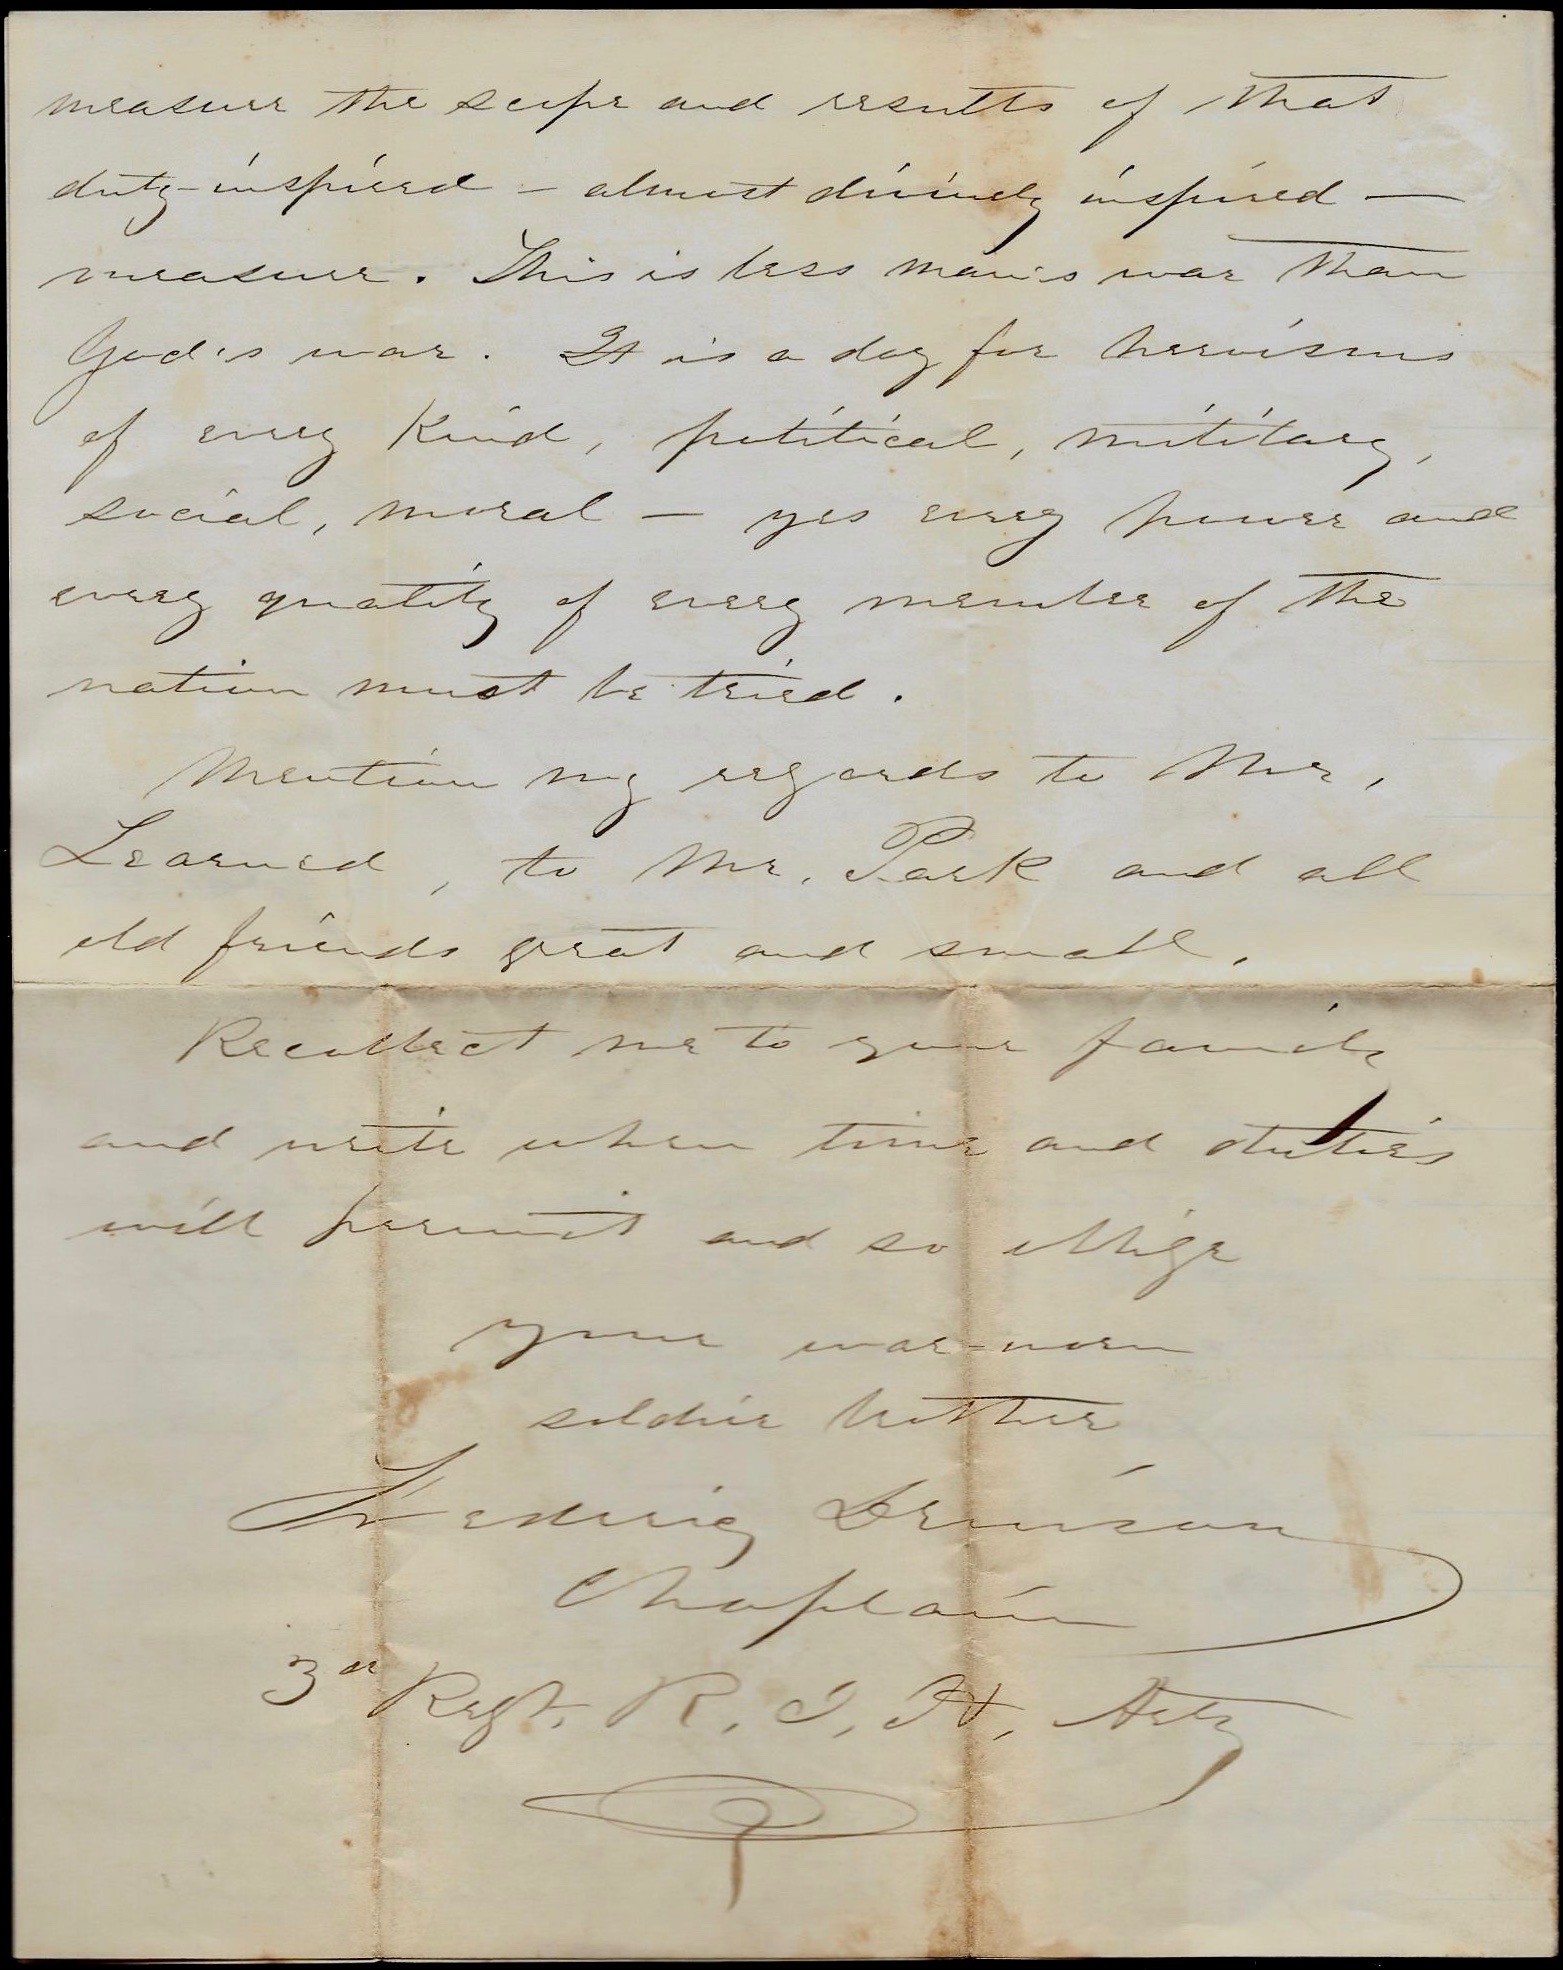 measure the scope and results of that
duty-inspired – almost divinely inspired –
measure. This is less man's war than
God's war. It is a day for heroisms
of every kind, political, military,
social, moral – yes every power and
every quality of every member of the
nation must be tried.
Mention my regards to Mr,
Learned, to Mr. Park and all
old friends great and small.
Recollect me to your family
and write when time and duties
will permit and so oblige
your war-worn
soldier brother
Frederic Denison
Chaplain
3rd Regt. R. I. H. Arty